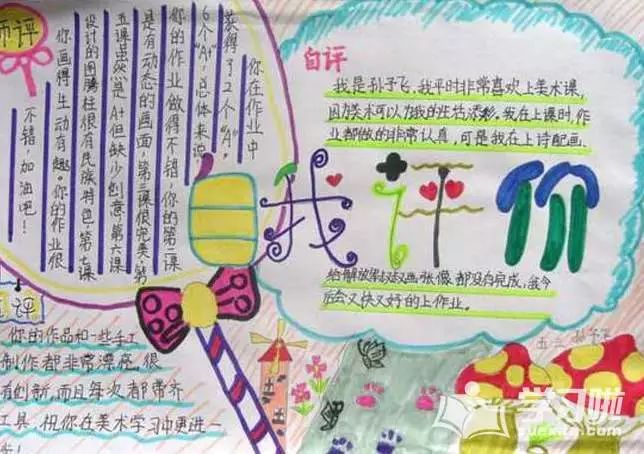 师评
你在作业中
获得了2个"A",
6个"A+"总体来说
你的作业做得不错,你的第二课
是有动态的画面,第三课很完美,第
五课虽然是A+但缺少创意,第六课
设计的图腾柱很有民族特色,第七课
你画得生动有趣。你的作业很
不错,加油吧!
自评
我是孙子飞,我平时非常喜欢上美术课,
因为美术可以为我的生活添彩。我在上课时,作
业都做的非常认真,可是我在上诗配画、
我评价
给解放军叔叔画张像都没有完成,我今
后会又快又好的上作业。
五 孙子飞
评
你的作品和一些手工
制作都非常漂亮,很
有创新,而且每次都带齐
工具,但你在美术学习中更进一
步!
学习啦
xuexila.com